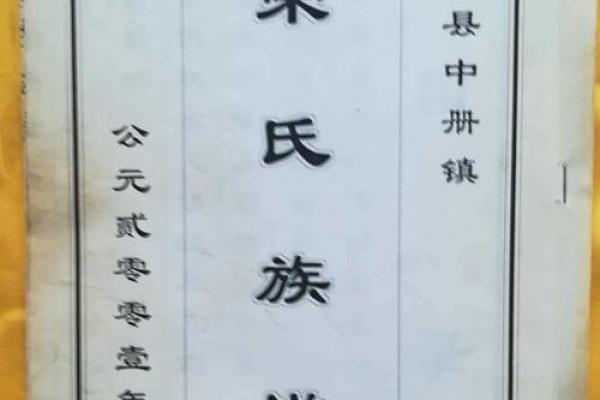 县中册镇
氏族
公元贰零零壹年